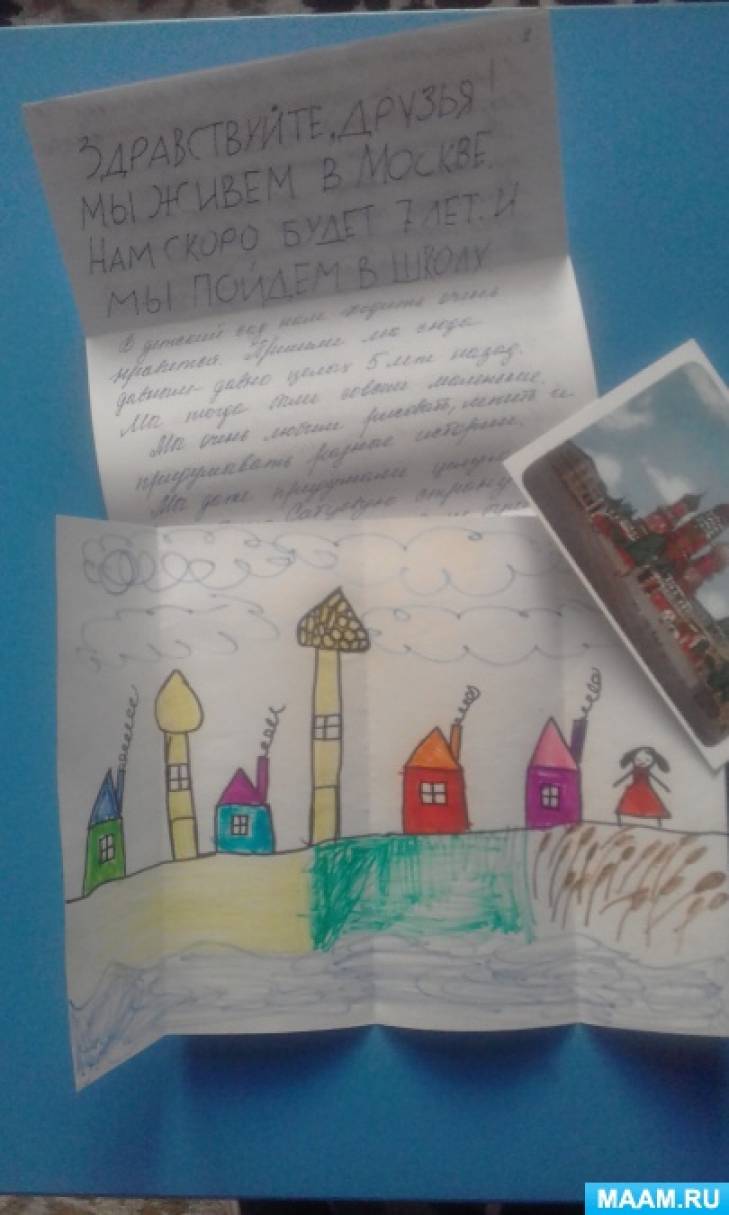 ЗДРАВСТВУЙТЕ, ДРУЗЬЯ!
МЫ ЖИВЕМ В МОСКВЕ.
НАМ СКОРО БУДЕТ 7 ЛЕТ. И
МЫ ПОЙДЕМ В ШКОЛУ
В детский сад нам ходить очень
нравиться. Пришли мы сюда
давным-давно целых 5 лет назад.
Мы тогда были совсем маленькие.
Мы очень любим рисовать, лепить и
придумывать разные истории.
Мы даже придумали целую
страну
MAAM.RU